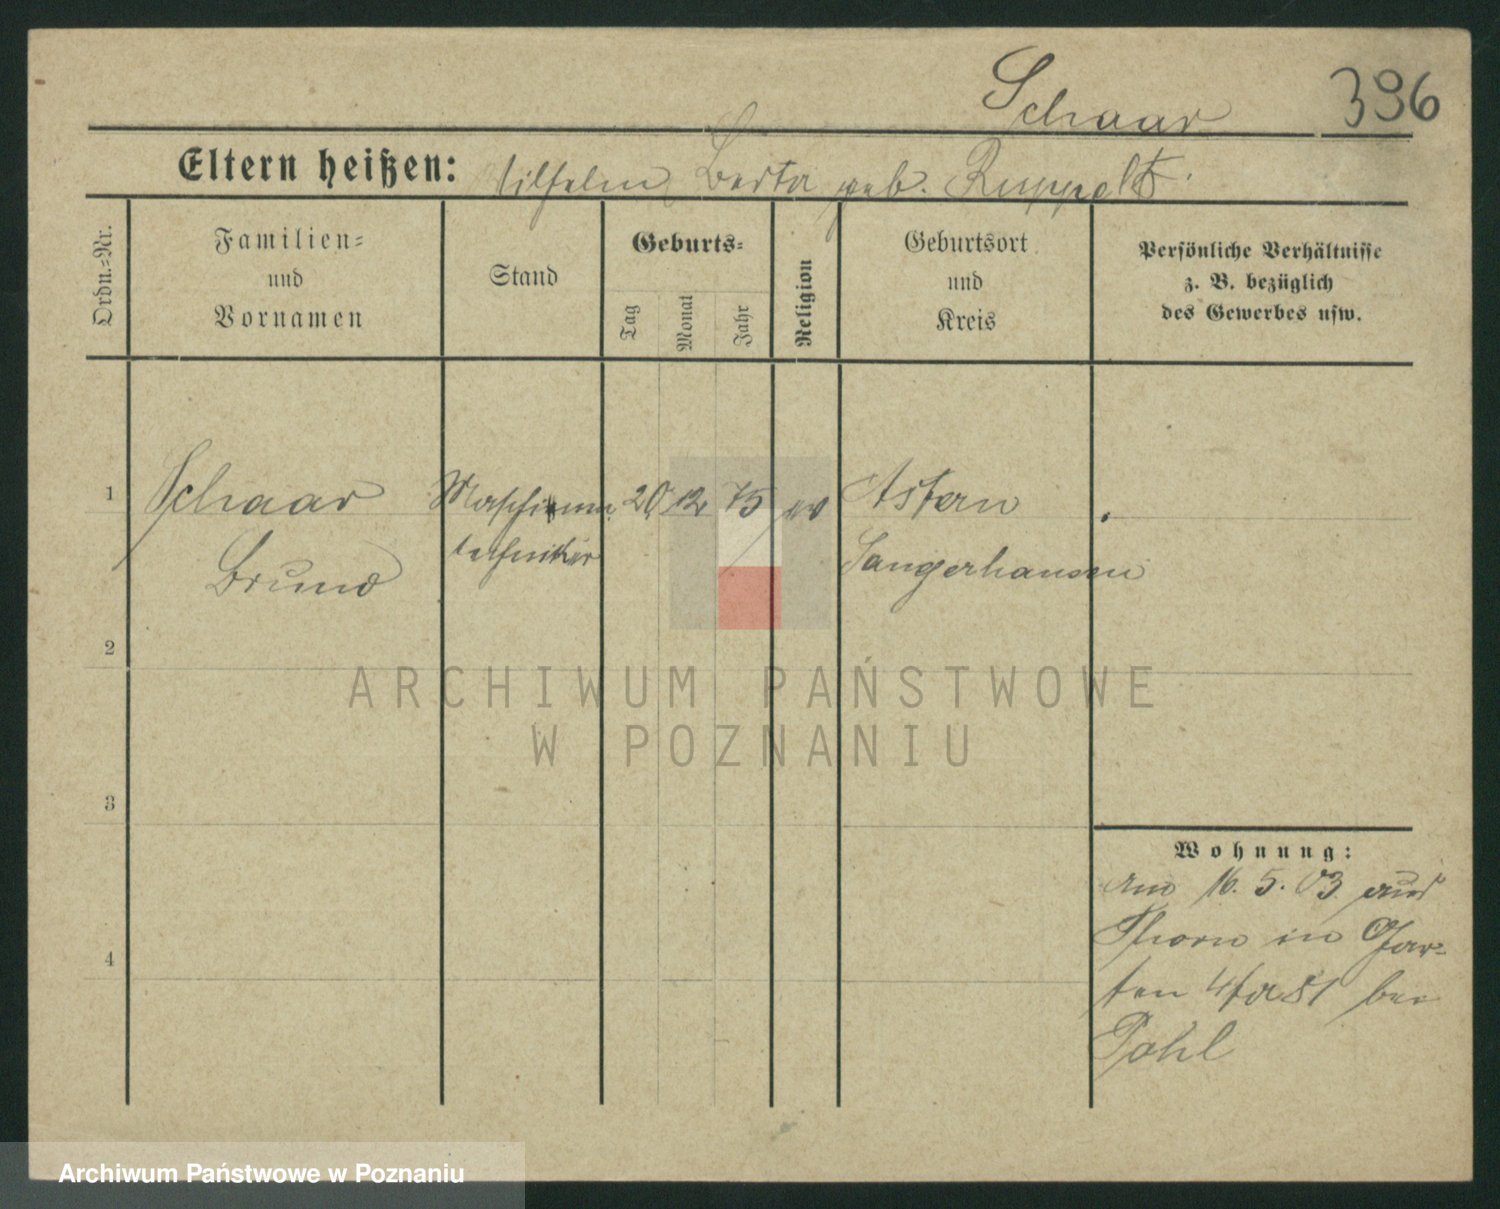 Schaar 396
Eltern heißen: Wilhelm, Berta geb. Ruppelt
Ordn.-Nr.
Familien-
und
Vornamen
Stand
Geburts-
Tag
Monat
Jahr
Religion
Geburtsort
und
Kreis
Persönliche Verhältnisse
z. B. bezüglich
des Gewerbes usw.
1 Schaar Maschinen 20 12 75 ev Artern
Bruno techniker Sangerhausen
2
3
4
Wohnung:
am 16. 5. 03 aus
Thorn in Gar-
ten bei
Pohl
ARCHIWUM PAŃSTWOWE
W POZNANIU
Archiwum Państwowe w Poznaniu